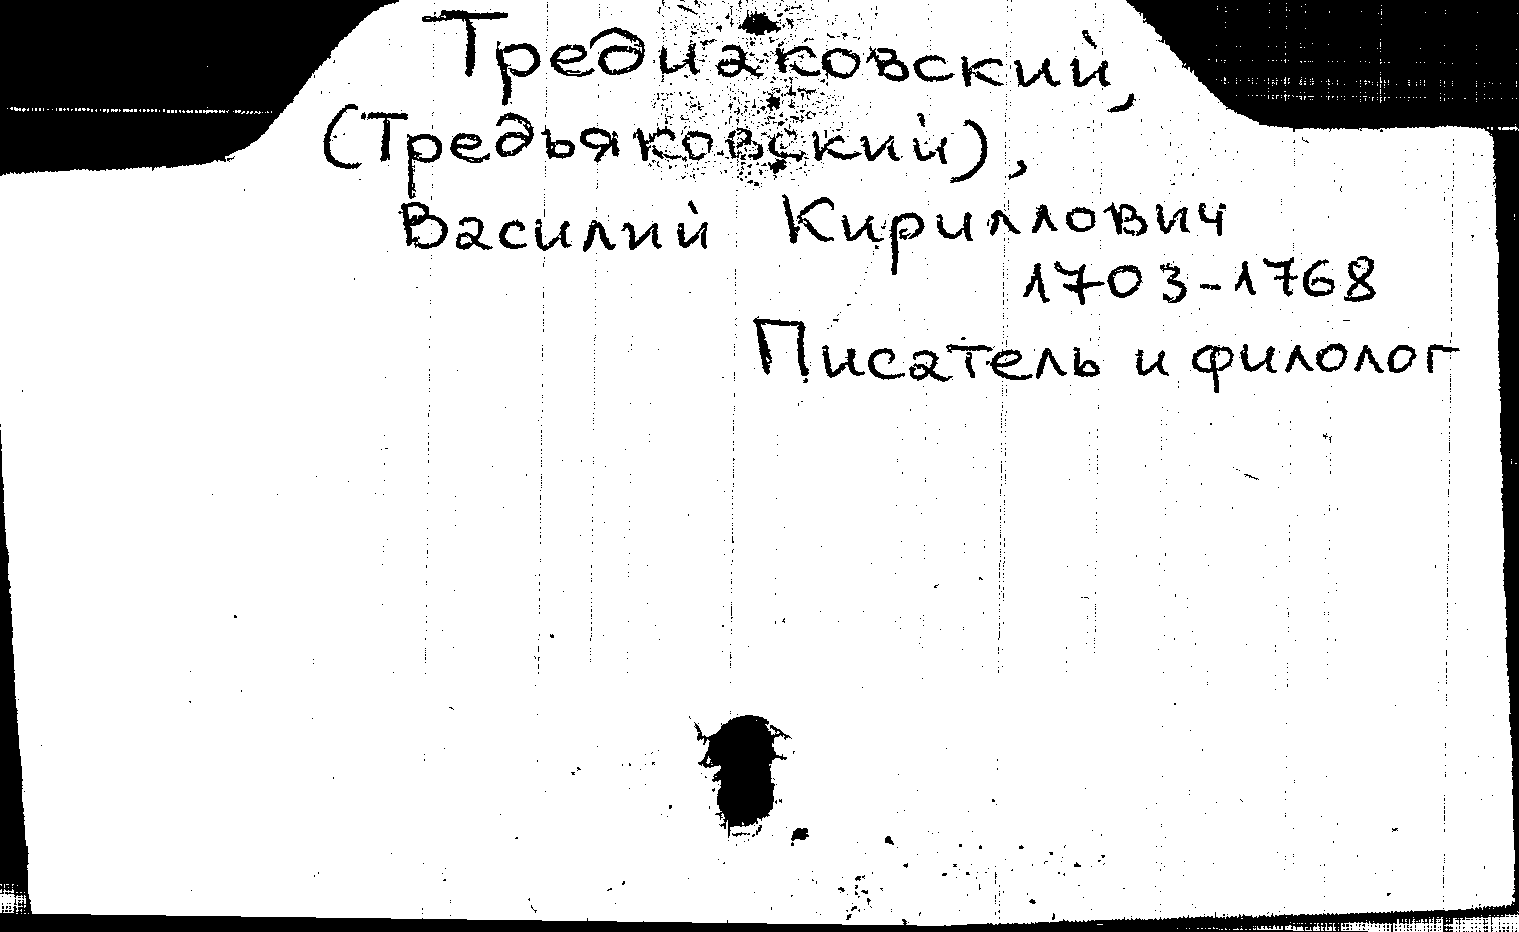 Тредиаковский,
(Тредьяковский),
Василий Кириллович
1703-1768
Писатель и филолог